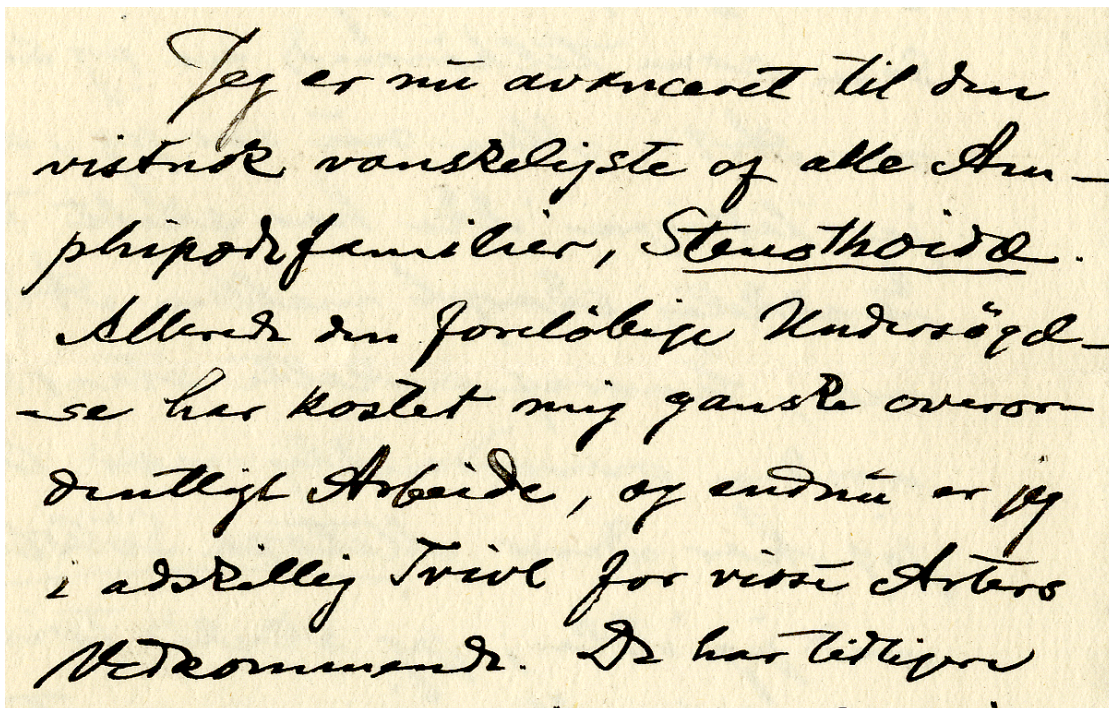 Jeg er nu avanceret til den
vistnok vanskeligste af alle Am-
phipodefamilier, Stenothoidæ.
Allerede den foreløbige Undersögel-
-se har kostet mig ganske overor-
dentligt Arbeide, og endnu er jeg
i adskillig Tvivl for visse Arters
Vedkommende. De har tidligere